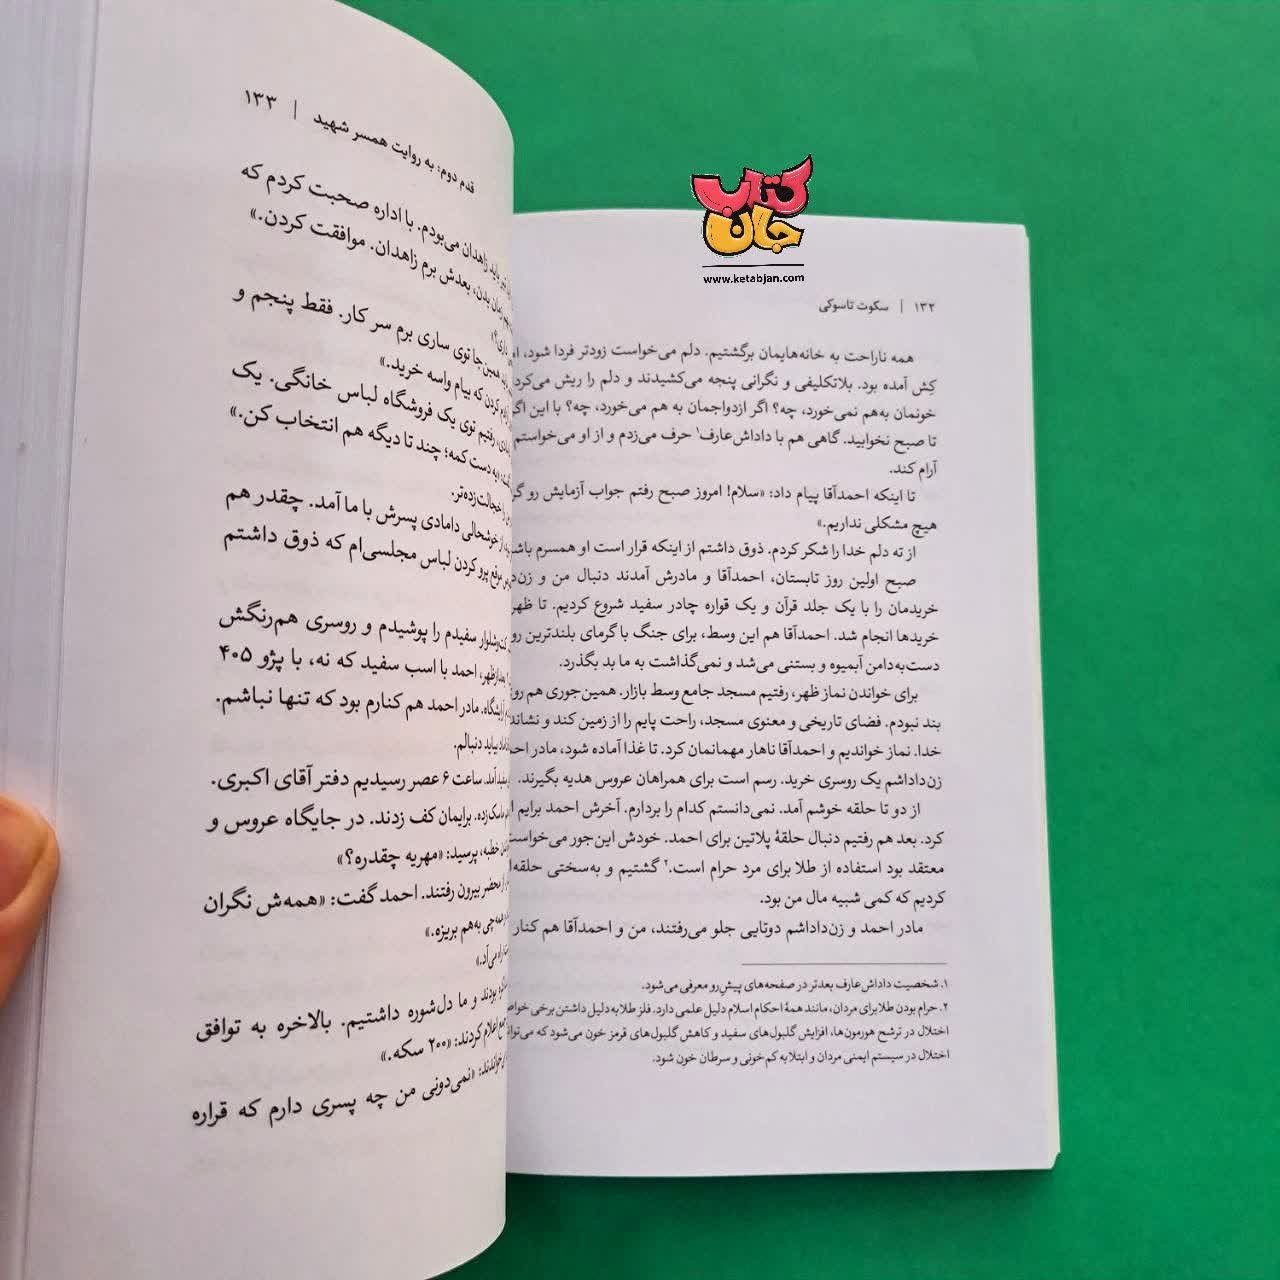 کتاب
جان
www.ketabjan.com
۱۳۲ | سکوت تاسوکی
همه ناراحت به خانه‌هایمان برگشتیم. دلم می‌خواست زودتر فردا شود،
کِش آمده بود. بلاتکلیفی و نگرانی پنجه می‌کشیدند و دلم را ریش می‌کرد
خونمان به‌هم نمی‌خورد، چه؟ اگر ازدواجمان به هم می‌خورد، چه؟ با این
تا صبح نخوابید. گاهی هم با داداش‌عارف۱ حرف می‌زدم و از او می‌خواستم
آرام کند.
تا اینکه احمدآقا پیام داد: «سلام! امروز صبح رفتم جواب آزمایش رو
هیچ مشکلی نداریم.»
از ته دلم خدا را شکر کردم. ذوق داشتم از اینکه قرار است او همسرم
صبح اولین روز تابستان، احمدآقا و مادرش آمدند دنبال من و
خریدمان را با یک جلد قرآن و یک قواره چادر سفید شروع کردیم. تا ظهر
خریدها انجام شد. احمدآقا هم این وسط، برای جنگ با گرمای بلندترین
دست‌به‌دامن آبمیوه و بستنی می‌شد و نمی‌گذاشت به ما بد بگذرد.
برای خواندن نماز ظهر، رفتیم مسجد جامع وسط بازار. همین‌جوری هم
بند نبودم. فضای تاریخی و معنوی مسجد، راحت پایم را از زمین کند و
خدا. نماز خواندیم و احمدآقا ناهار مهمانمان کرد. تا غذا آماده شود، مادر
زن‌داداشم یک روسری خرید. رسم است برای همراهان عروس هدیه بگیرند.
از دو تا حلقه خوشم آمد. نمی‌دانستم کدام را بردارم. آخرش احمد برایم
کرد. بعد هم رفتیم دنبال حلقهٔ پلاتین برای احمد. خودش این‌جور می‌خواست
معتقد بود استفاده از طلا برای مرد حرام است.۲ گشتیم و به‌سختی
کردیم که کمی شبیه مال من بود.
مادر احمد و زن‌داداشم دوتایی جلو می‌رفتند، من و احمدآقا هم کنار
۱. شخصیت داداش‌عارف بعدتر در صفحه‌های پیشِ‌رو معرفی می‌شود.
۲. حرام بودن طلا برای مردان، مانند همهٔ احکام اسلام دلیل علمی دارد. فلز طلا به دلیل داشتن برخی
اختلال در ترشح هورمون‌ها، افزایش گلبول‌های سفید و کاهش گلبول‌های قرمز خون می‌شود که
اختلال در سیستم ایمنی مردان و ابتلا به کم‌خونی و سرطان خون شود.
قدم دوم: به روایت همسر شهید | ۱۳۳
باید زاهدان می‌بودم. با اداره صحبت کردم که
بدن، بعدش برم زاهدان. موافقت کردن.»
همین‌جا توی ساری برم سر کار. فقط پنجم و
کردن که بیام واسه خرید.»
رفتیم توی یک فروشگاه لباس خانگی. یک
دست کمه؛ چند تا دیگه هم انتخاب کن.»
خجالت‌زده‌تر.
از خوشحالی دامادی پسرش با ما آمد. چقدر هم
موقع پرو کردن لباس مجلسی‌ام که ذوق داشتم
کت‌وشلوار سفیدم را پوشیدم و روسری هم‌رنگش
بعدازظهر، احمد با اسب سفید که نه، با پژو ۴۰۵
آرایشگاه. مادر احمد هم کنارم بود که تنها نباشم.
بیاید دنبالم.
آمد. ساعت ۶ عصر رسیدیم دفتر آقای اکبری.
زده. برایمان کف زدند. در جایگاه عروس و
خطبه، پرسید: «مهریه چقدره؟»
از محضر بیرون رفتند. احمد گفت: «همه‌ش نگران
به‌هم بریزه.»
می‌آد.»
بودند و ما دل‌شوره داشتیم. بالاخره به توافق
اعلام کردند: «۲۰۰ سکه.»
خواندند: «نمی‌دونی من چه پسری دارم که قراره